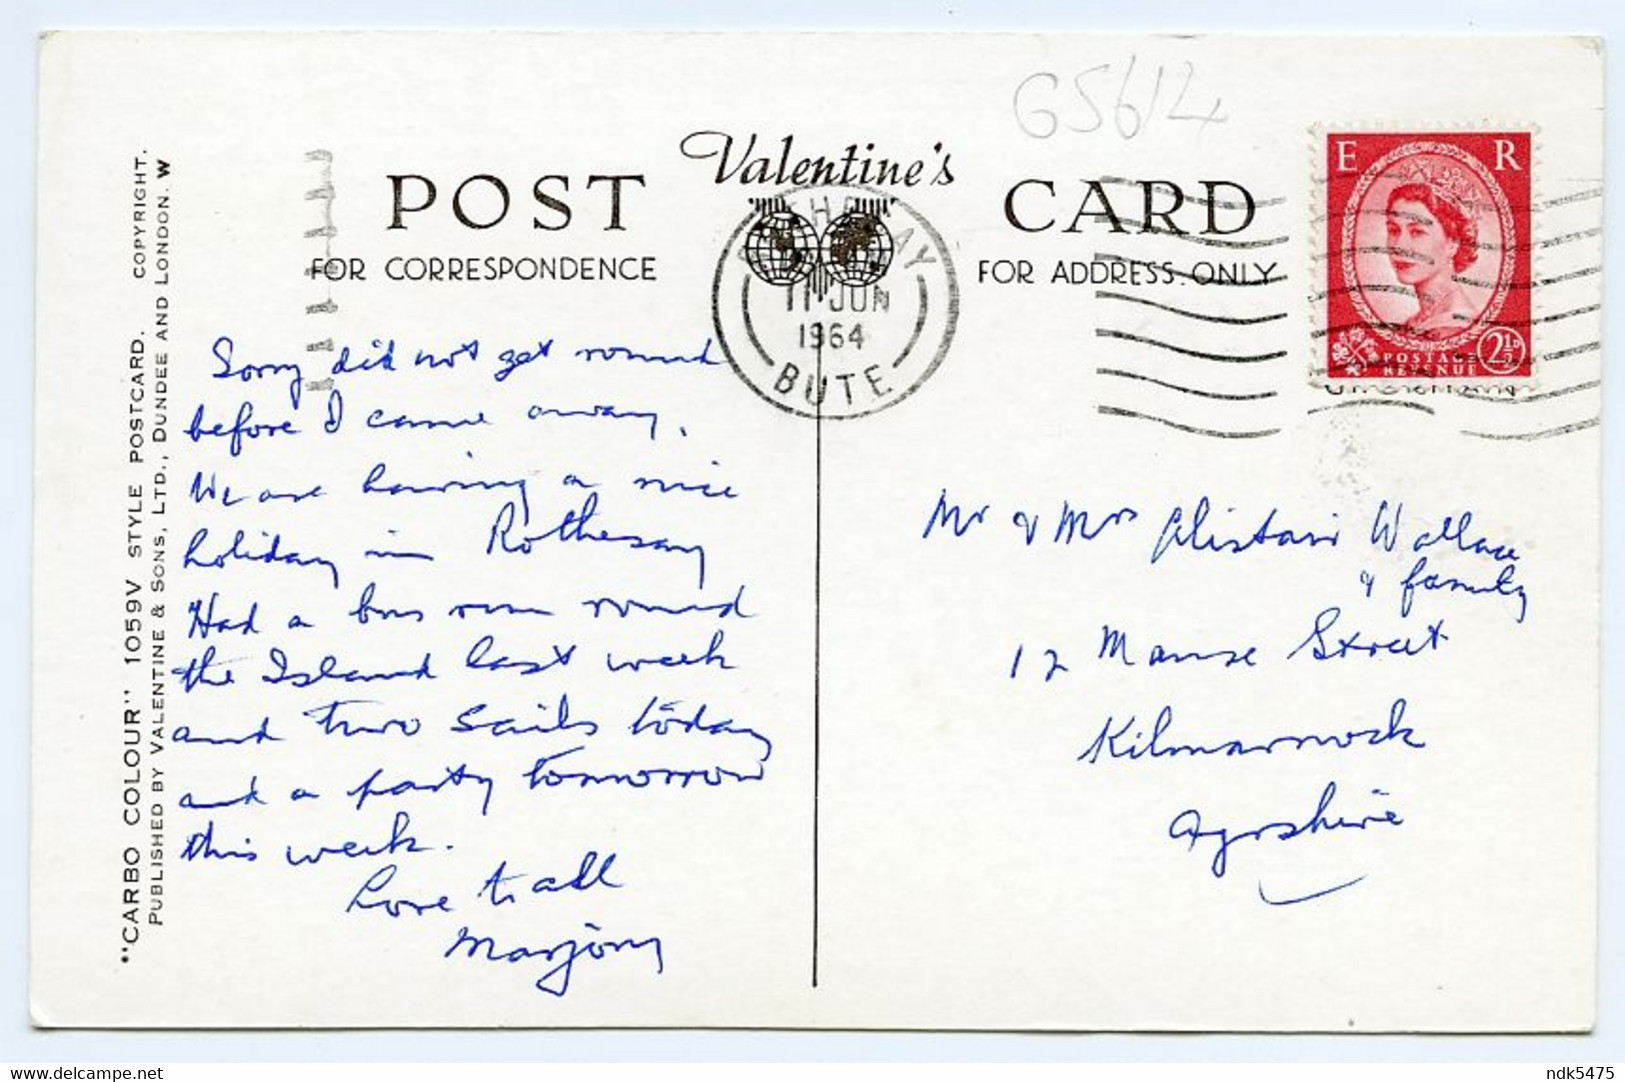 G5614
Valentine's
POST CARD
FOR CORRESPONDENCE
FOR ADDRESS ONLY
ROTHESAY
11 JUN
1964
BUTE
E R
POSTAGE
REVENUE
2½D
"CARBO COLOUR" 1059V STYLE POSTCARD. COPYRIGHT.
PUBLISHED BY VALENTINE & SONS, LTD., DUNDEE AND LONDON. W
Sorry did not get round
before I came away.
We are having a nice
holiday in Rothesay
Had a bus run round
the Island last week
and two sails today
and a party tomorrow
this week.
Love to all
Marjory
Mr & Mrs Alistair Wallace
& family
12 Manse Street
Kilmarnock
Ayrshire
ndk5475